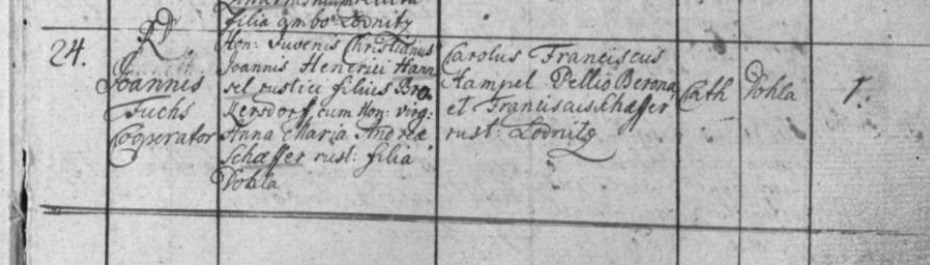 filia ambo Lodnitz
24.
R
Joannis
Fuchs
Cooperator
Hon: Juvenis Christianus
Joannis Henrici Hann
sel rustici filius Bra
Kersdorf cum Hon: virg:
Anna Maria Andreæ
Schæffer rust: filia
Dohla
Carolus Franciscus
Hampel Pellio Berona
et Franciscus Schæffer
rust: Lodnitz
Cath
Dohla
1.